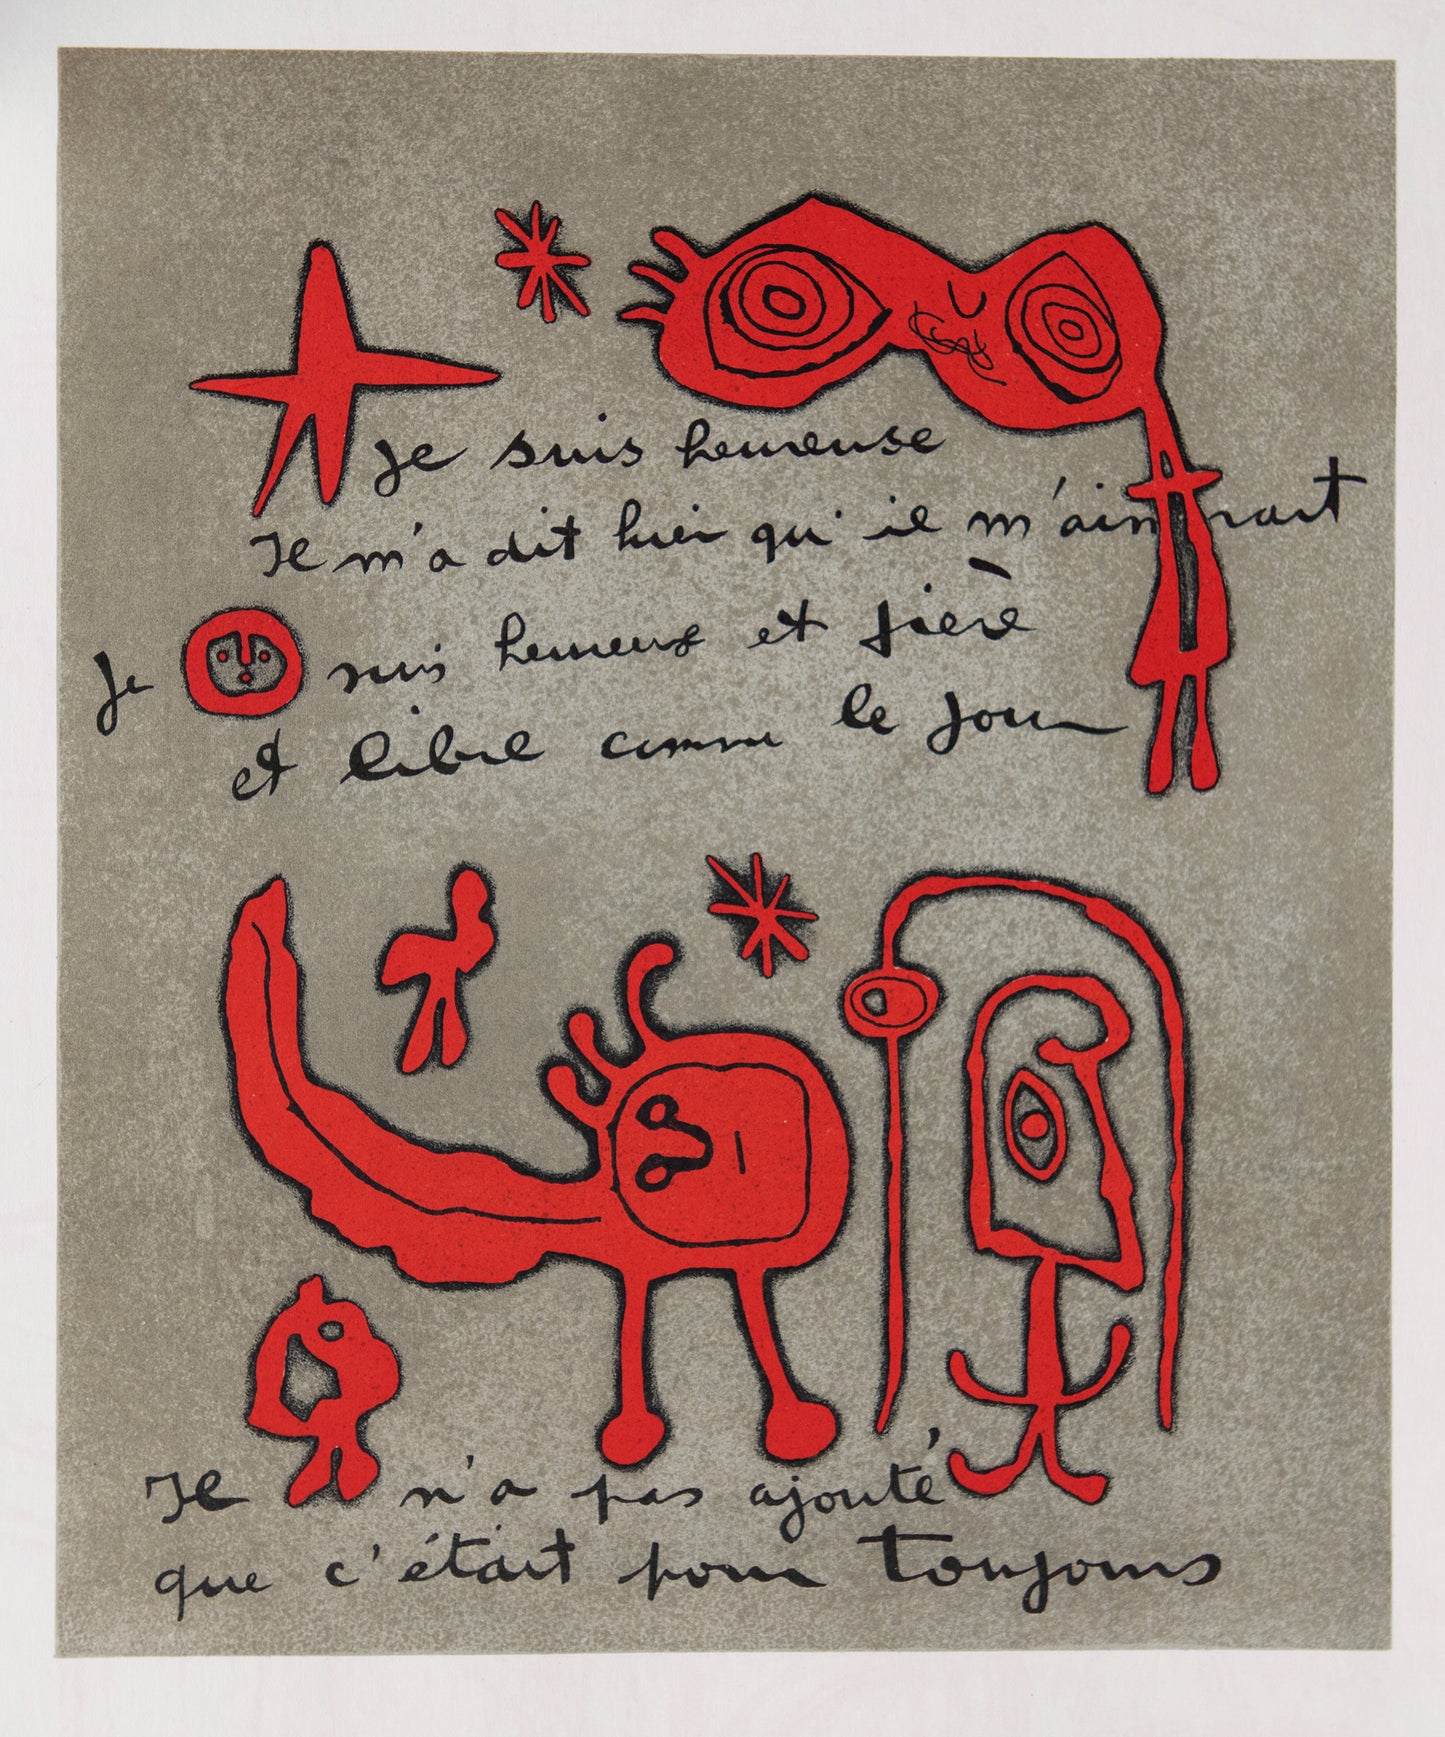 Je suis heureuse
Il m'a dit hier qu'il m'aimerait
Je suis heureuse et fière
et libre comme le jour
Il n'a pas ajouté
que c'était pour toujours